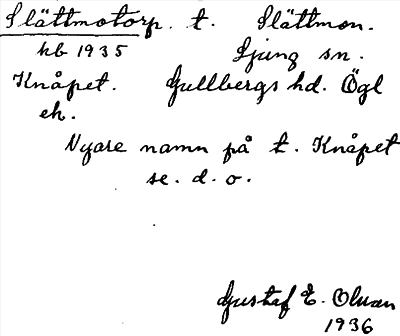 Slättmotorp. t. Slättmon.
kb 1935 Ljung sn.
Knåpet. Gullbergs hd. Ögl
eh.
Nyare namn på t. Knåpet
se. d. o.
Gustaf E. Olsson
1936